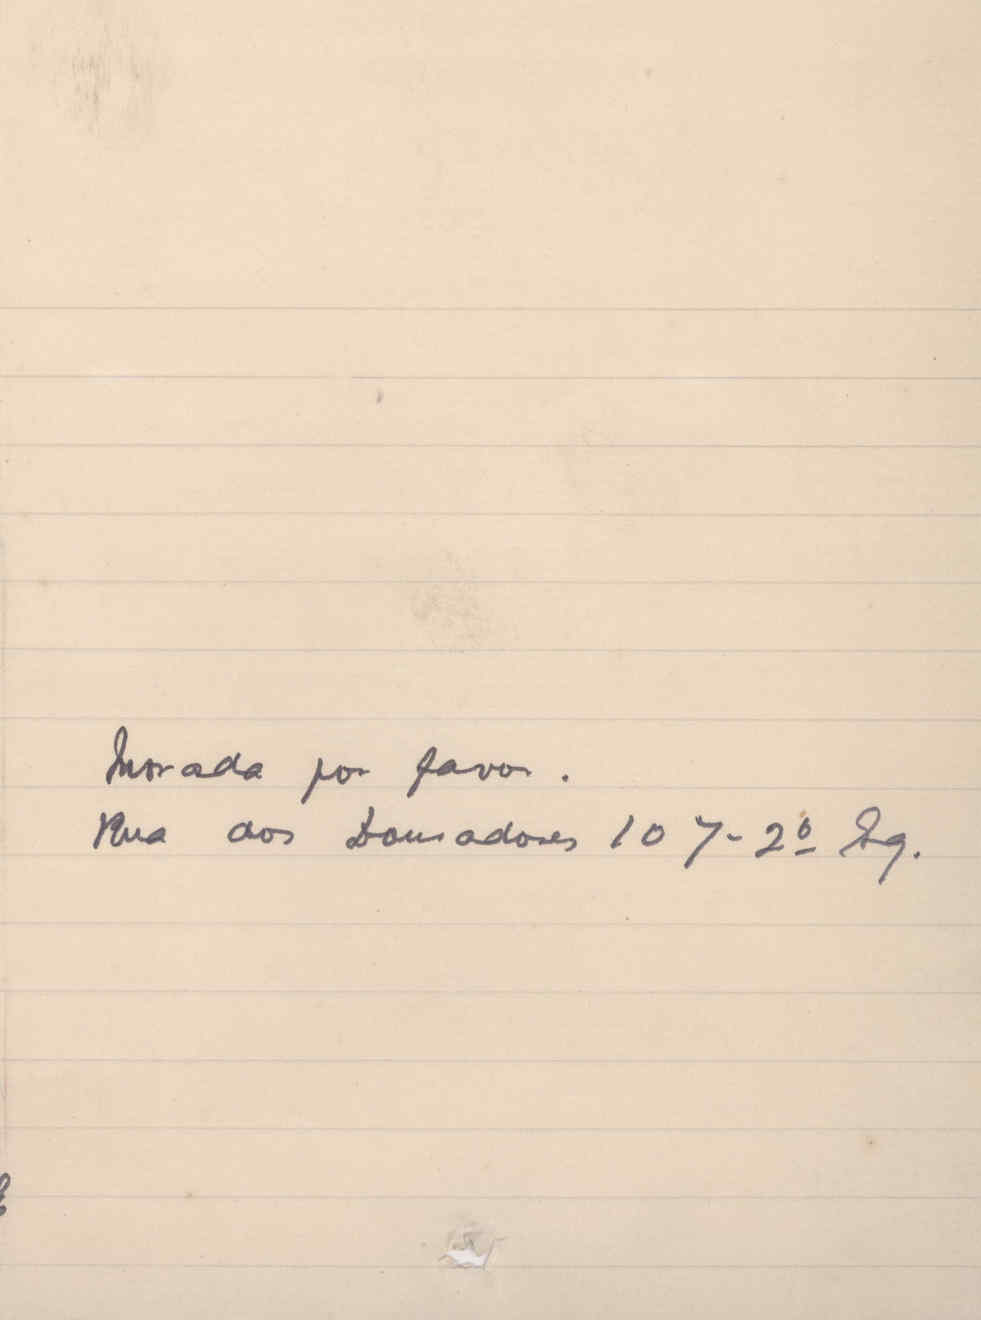 Morada por favor.
Rua dos Douradores 107-2º Esq.